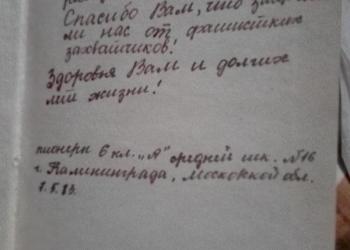 Спасибо Вам, что
ли нас от фашистких
захватчиков!
Здоровья Вам и долгих
лет жизни!
пионеры 6 кл. „А" средней шк. №16
г. Калининграда, Московской обл.